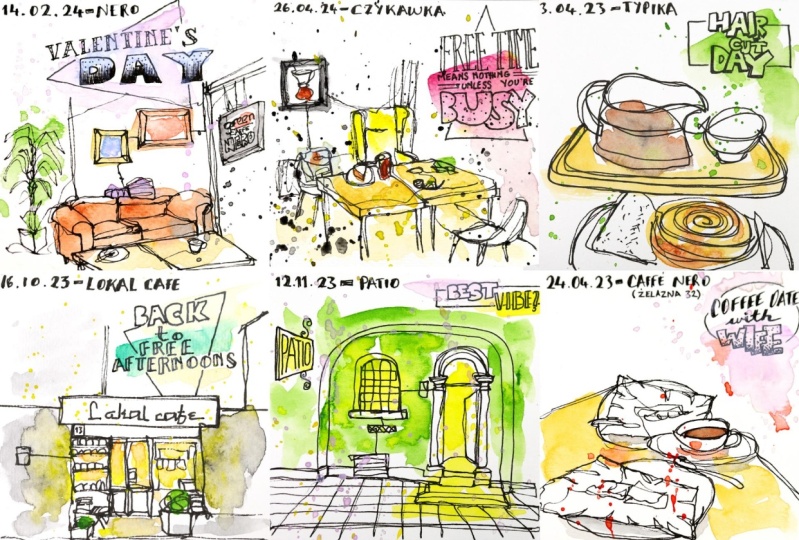 14.02.24=NERO
VALENTINE'S
DAY
GREEN
CAFFÈ
NERO
26.04.24=CZYKAWKA
FREE TIME
MEANS NOTHING
UNLESS YOU'RE
BUSY
3.04.23=TYPIKA
HAIR
CUT
DAY
16.10.23=LOKAL CAFE
BACK
to
FREE
AFTERNOONS
Lokal cafe
13
12.11.23=PATIO
BEST
VIBE?
PATIO
24.04.23=CAFFÈ NERO
(ŻELAZNA 32)
COFFEE DATE
with
WIFE